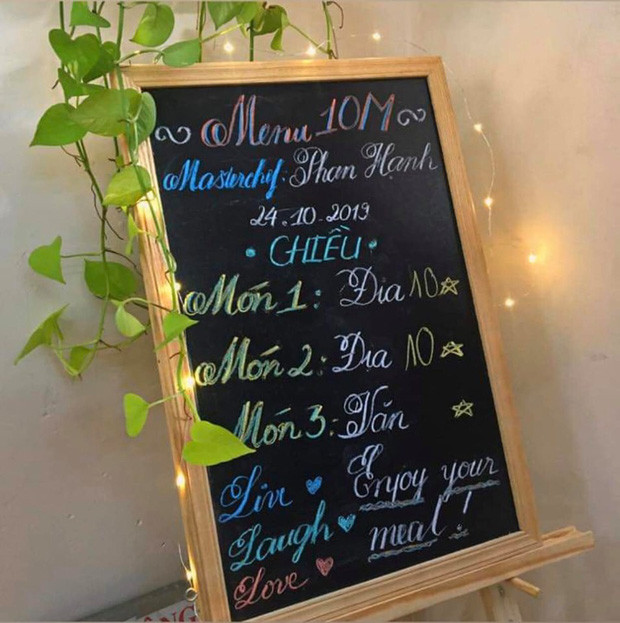 Menu 10M
Masterchef: Phan Hạnh
24.10-2019
CHIỀU
Món 1: Địa 10
Món 2: Địa 10
Món 3: Văn
Live
Laugh
Love
Enjoy your
meal!